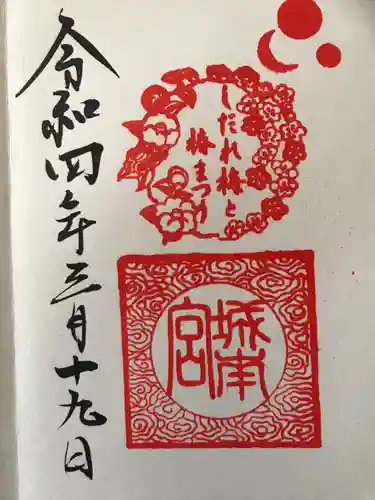 しだれ梅と
椿まつり
城南
宮
令和四年三月十九日